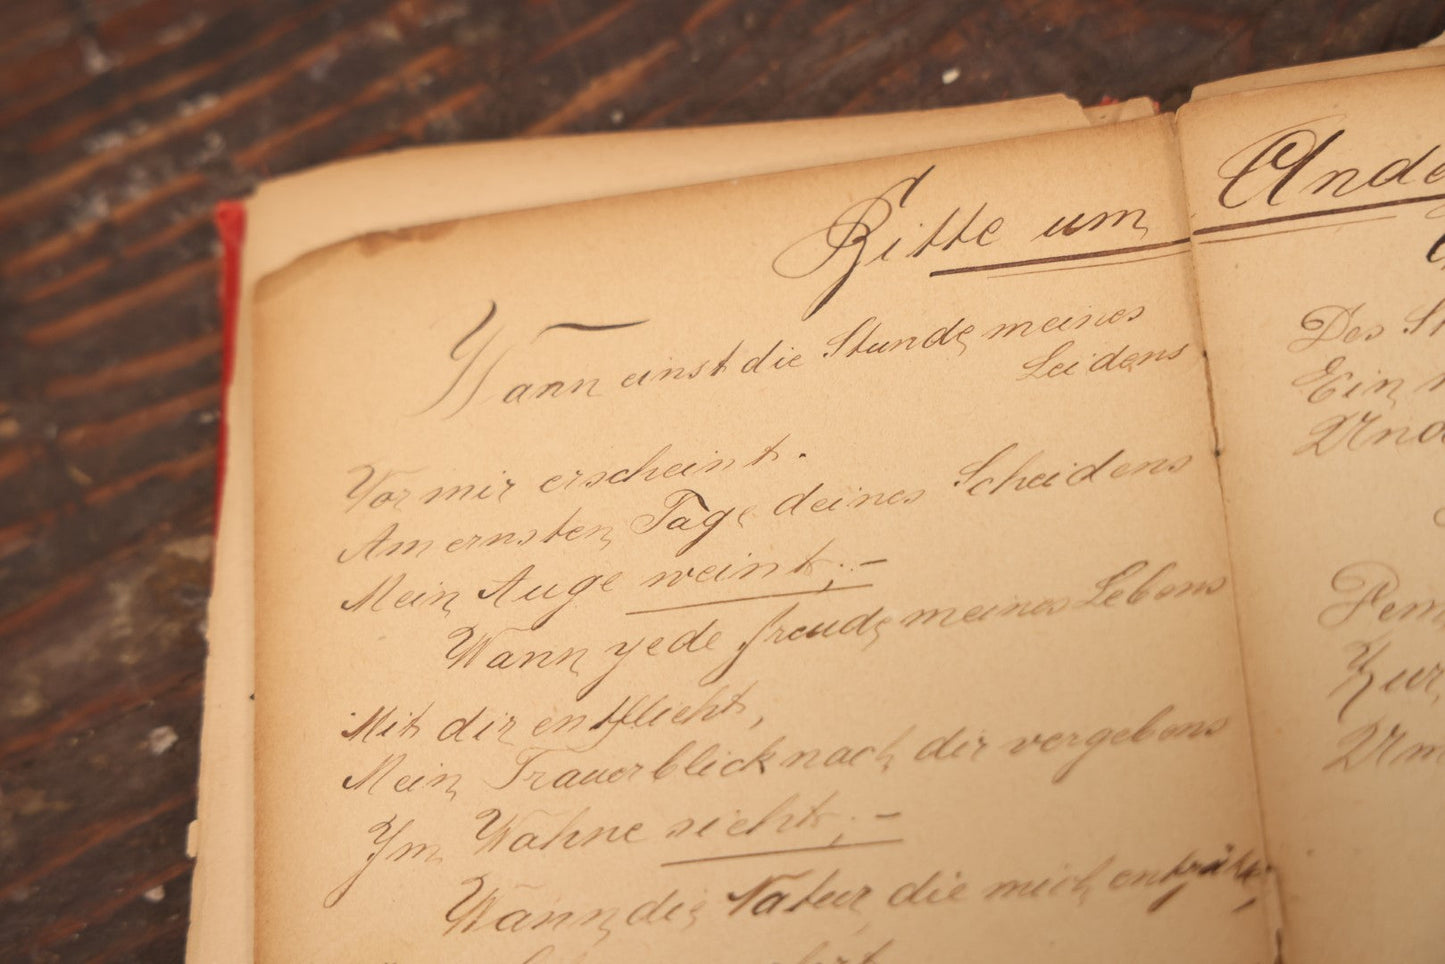 Bitte um Ande
Wann einst die Stunde meines
Leidens
Vor mir erscheint.
Am ernsten Tage deines Scheidens
Mein Auge weint; –
Wann jede freude meines Lebens
Mit dir entflieht,
Mein Trauerblick nach dir vergebens
Im Wahne sieht; –
Wann die Natur, die mich
Des
Ein
Und
Zur
Um